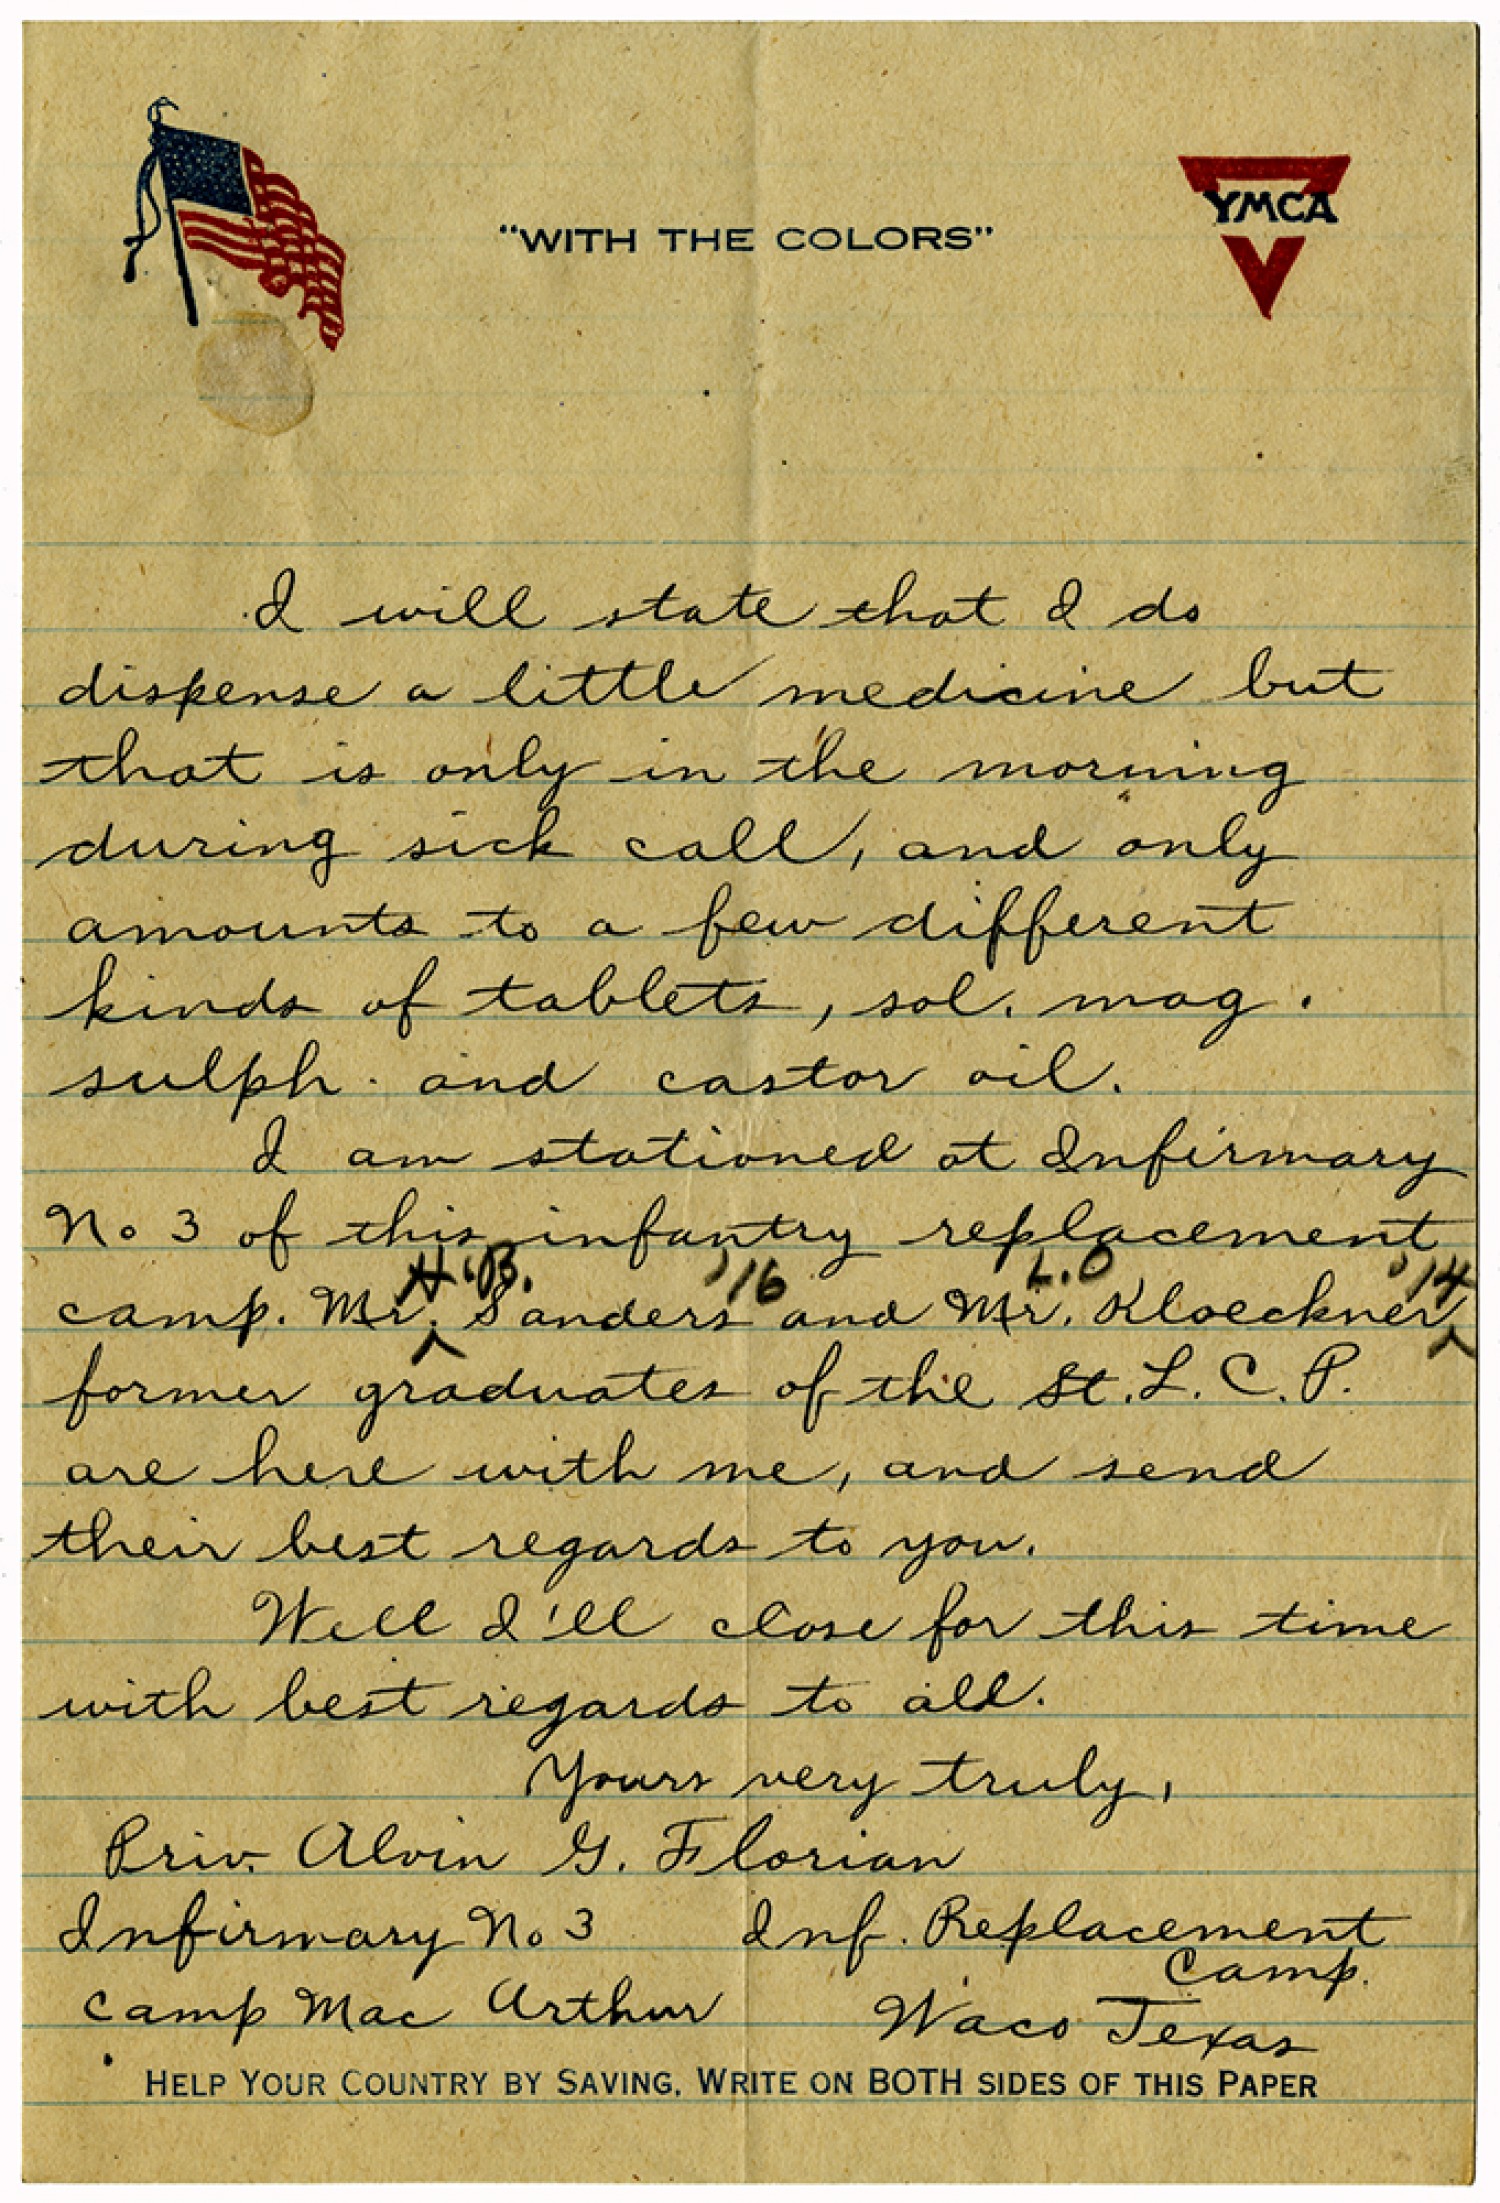 "WITH THE COLORS"
YMCA
I will state that I do
dispense a little medicine but
that is only in the morning
during sick call, and only
amounts to a few different
kinds of tablets, sol. mag.
sulph. and castor oil.
I am stationed at Infirmary
No 3 of this infantry replacement
H.B. '16 L.O '14
camp. Mr. Sanders and Mr. Kloeckner
former graduates of the St. L. C. P.
are here with me, and send
their best regards to you.
Well I'll close for this time
with best regards to all.
Yours very truly,
Priv. Alvin G. Florian
Infirmary No 3 Inf. Replacement
Camp.
Camp Mac Arthur Waco Texas
HELP YOUR COUNTRY BY SAVING. WRITE ON BOTH SIDES OF THIS PAPER